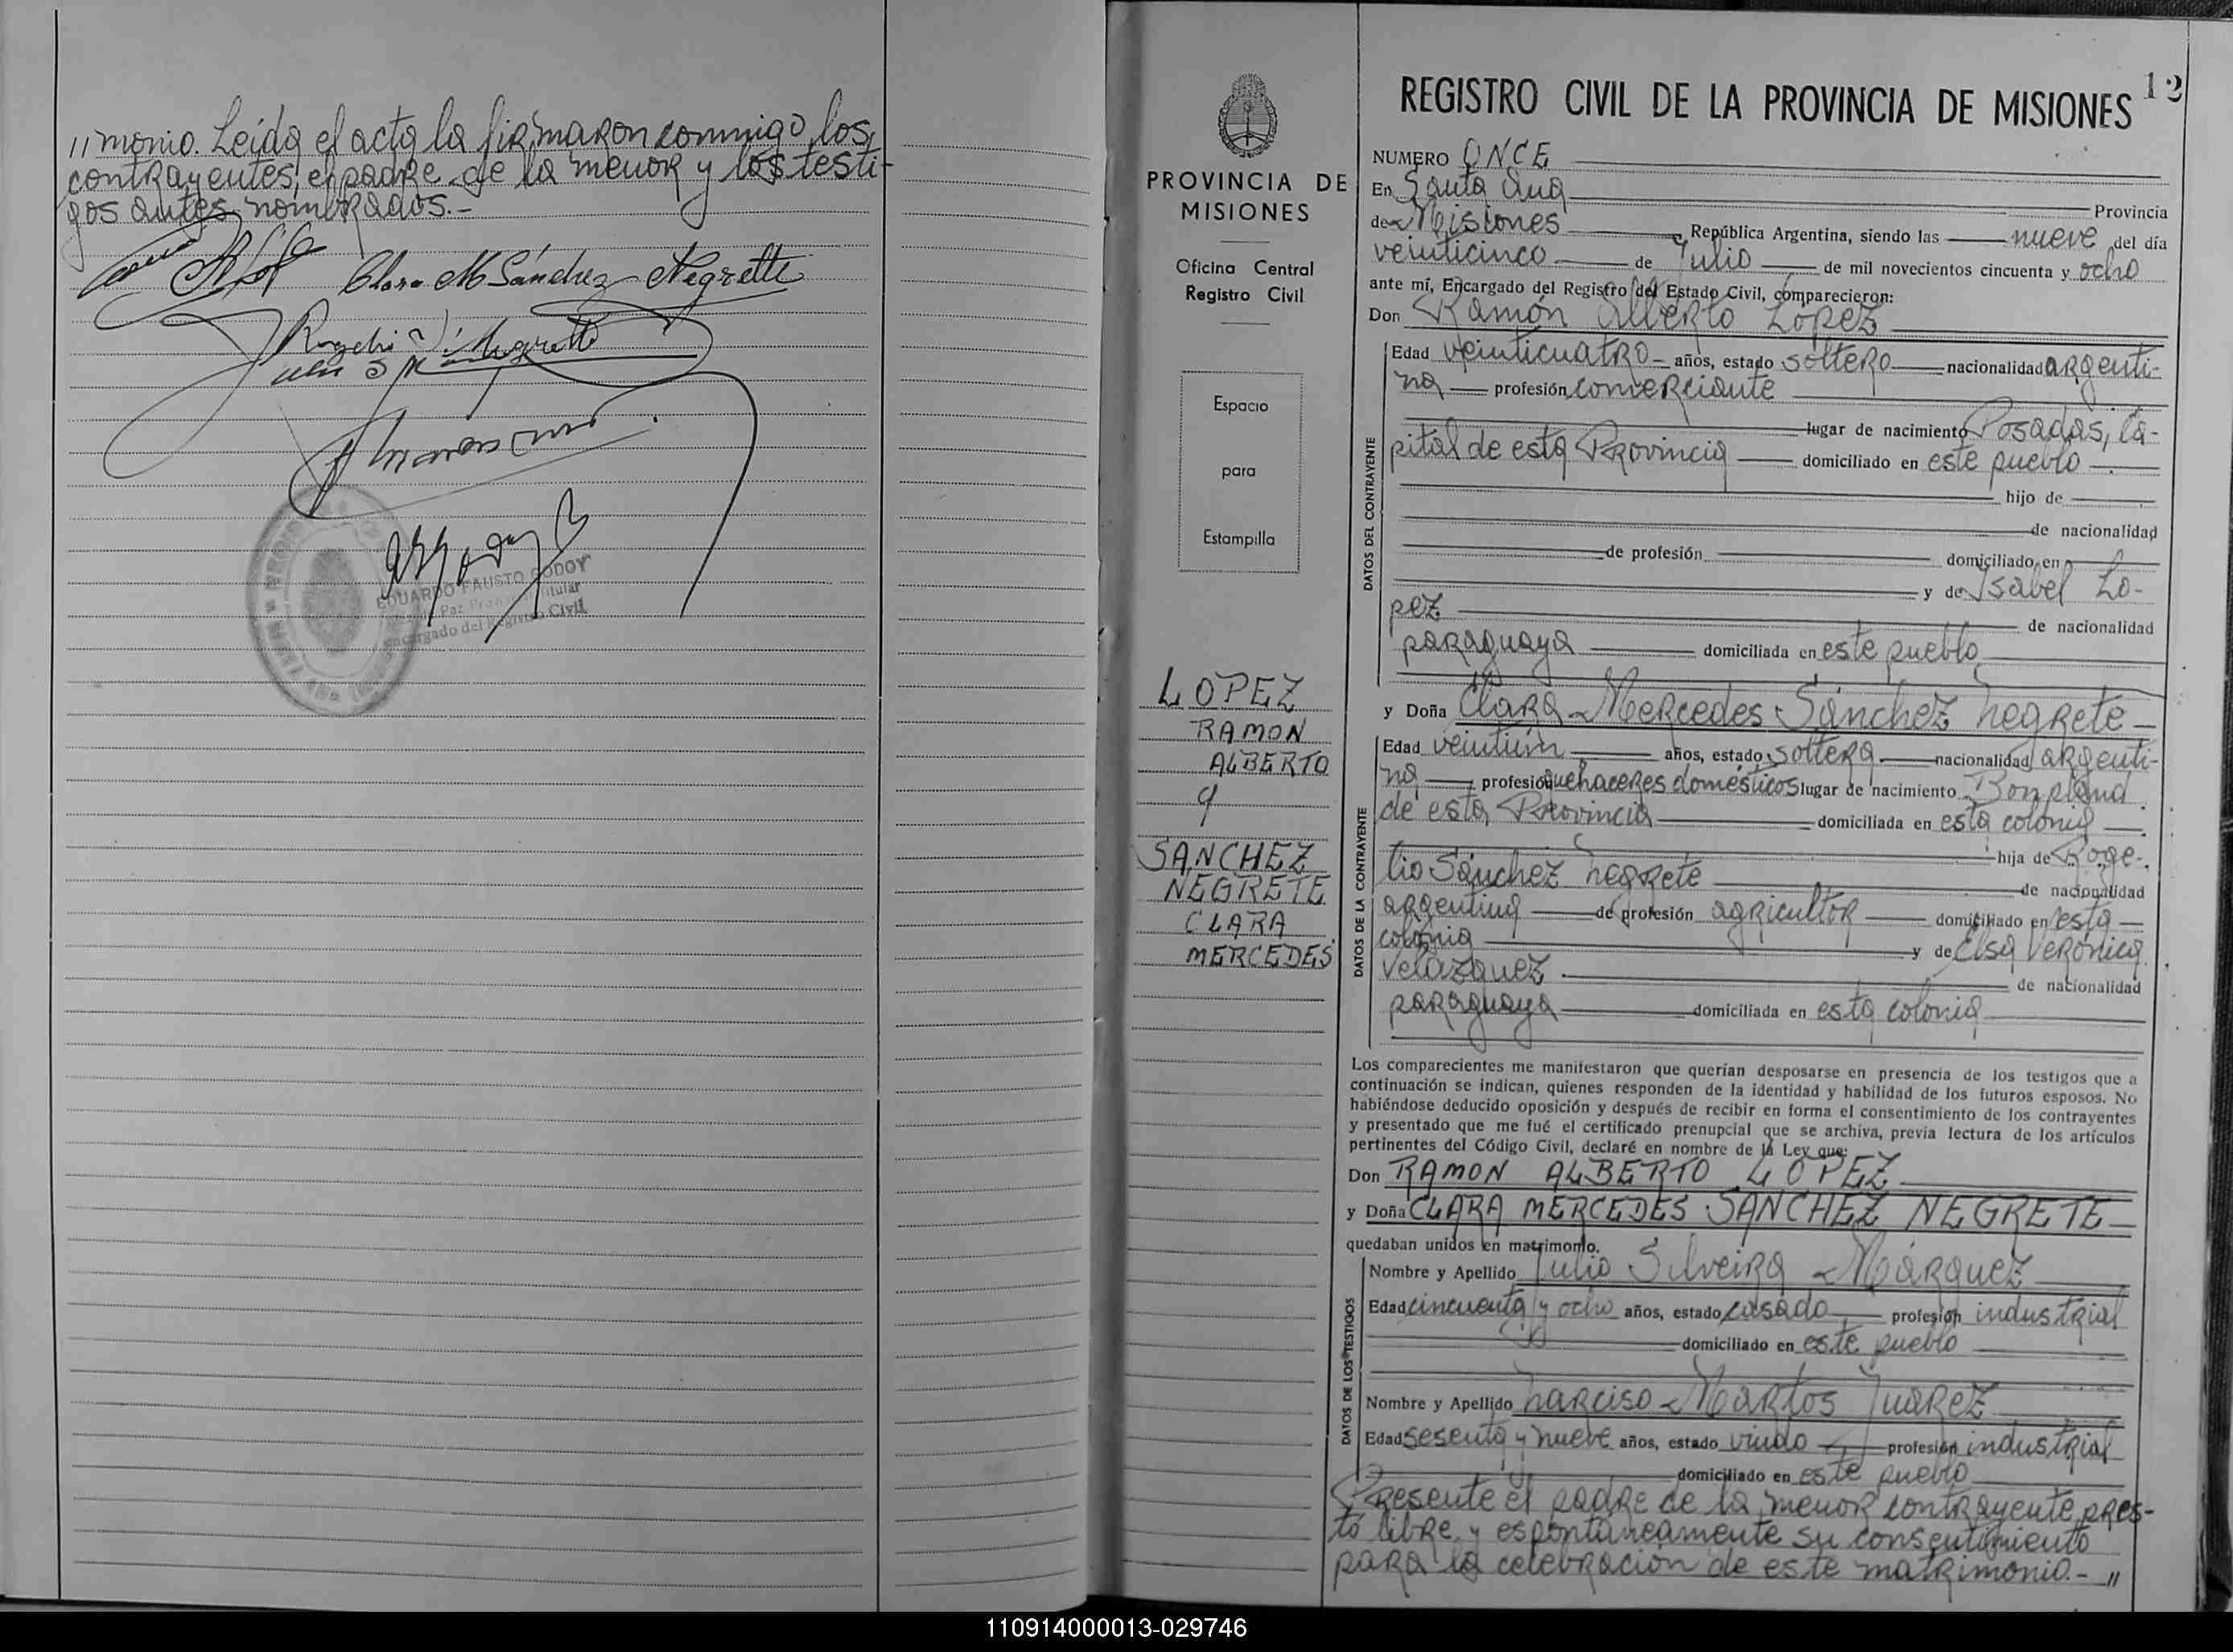 // monio. Leída el acta la firmaron conmigo los
contrayentes, el padre de la menor y los testi-
gos antes nombrados.-
Clara M Sánchez Negrette
EDUARDO FAUSTO GODOY
Paz
Titular
Encargado del Registro Civil
12
REGISTRO CIVIL DE LA PROVINCIA DE MISIONES
PROVINCIA DE
MISIONES
Oficina Central
Registro Civil
Espacio
para
Estampilla
LOPEZ
RAMON
ALBERTO
y
SANCHEZ
NEGRETE
CLARA
MERCEDES
NUMERO ONCE
En Santa Ana Provincia
de Misiones, República Argentina, siendo las nueve del día
veinticinco de Julio de mil novecientos cincuenta y ocho
ante mí, Encargado del Registro del Estado Civil, comparecieron:
Don Ramón Alberto López
DATOS DEL CONTRAYENTE
Edad veinticuatro años, estado soltero nacionalidad argenti-
na profesión comerciante
lugar de nacimiento Posadas, Ca-
pital de esta Provincia domiciliado en este pueblo
hijo de
de nacionalidad
de profesión domiciliado en
y de Isabel Ló-
pez de nacionalidad
paraguaya domiciliada en este pueblo
y Doña Clara Mercedes Sánchez Negrete
DATOS DE LA CONTRAYENTE
Edad veintiún años, estado soltera nacionalidad argenti-
na profesión quehaceres domésticos lugar de nacimiento Bonpland
de esta Provincia domiciliada en esta colonia
hija de Roge-
lio Sánchez Negrete de nacionalidad
argentina de profesión agricultor domiciliado en esta
colonia y de Elsa Verónica
Velazquez de nacionalidad
paraguaya domiciliada en esta colonia
Los comparecientes me manifestaron que querían desposarse en presencia de los testigos que a
continuación se indican, quienes responden de la identidad y habilidad de los futuros esposos. No
habiéndose deducido oposición y después de recibir en forma el consentimiento de los contrayentes
y presentado que me fué el certificado prenupcial que se archiva, previa lectura de los artículos
pertinentes del Código Civil, declaré en nombre de la Ley que:
Don RAMON ALBERTO LOPEZ
y Doña CLARA MERCEDES SANCHEZ NEGRETE
quedaban unidos en matrimonio.
DATOS DE LOS TESTIGOS
Nombre y Apellido Julio Silveira Márquez
Edad cincuenta y ocho años, estado casado profesión industrial
domiciliado en este pueblo
Nombre y Apellido Narciso Martos Juarez
Edad sesenta y nueve años, estado viudo profesión industrial
domiciliado en este pueblo
Presente el padre de la menor contrayente, pres-
tó libre y espontáneamente su consentimiento
para la celebración de este matrimonio.- //
110914000013-029746